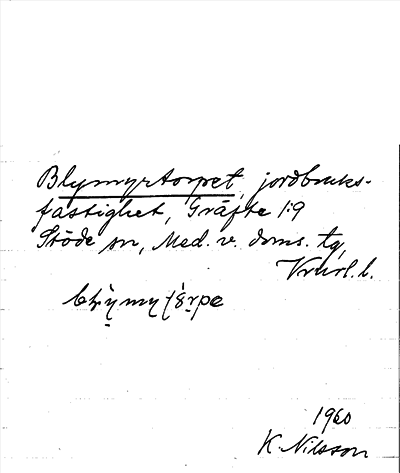 Blymyrtorpet, jordbruks-
fastighet, Gräfte 1:9
Stöde sn, Med. v. doms. tg,
1960
K. Nilsson